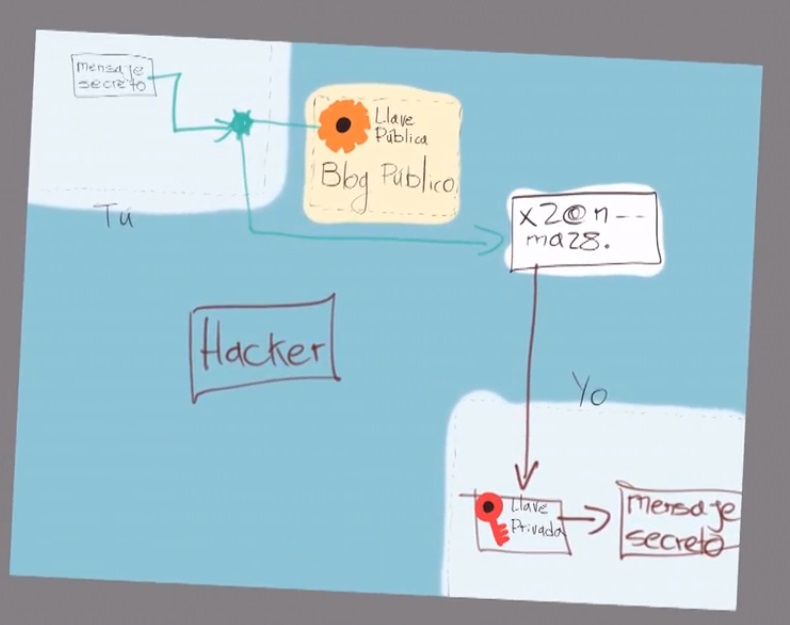 mensaje
secreto
Llave
Pública
Blog Público
Tú
x2@n--
ma28.
Hacker
Yo
Llave
Privada
mensaje
secreto